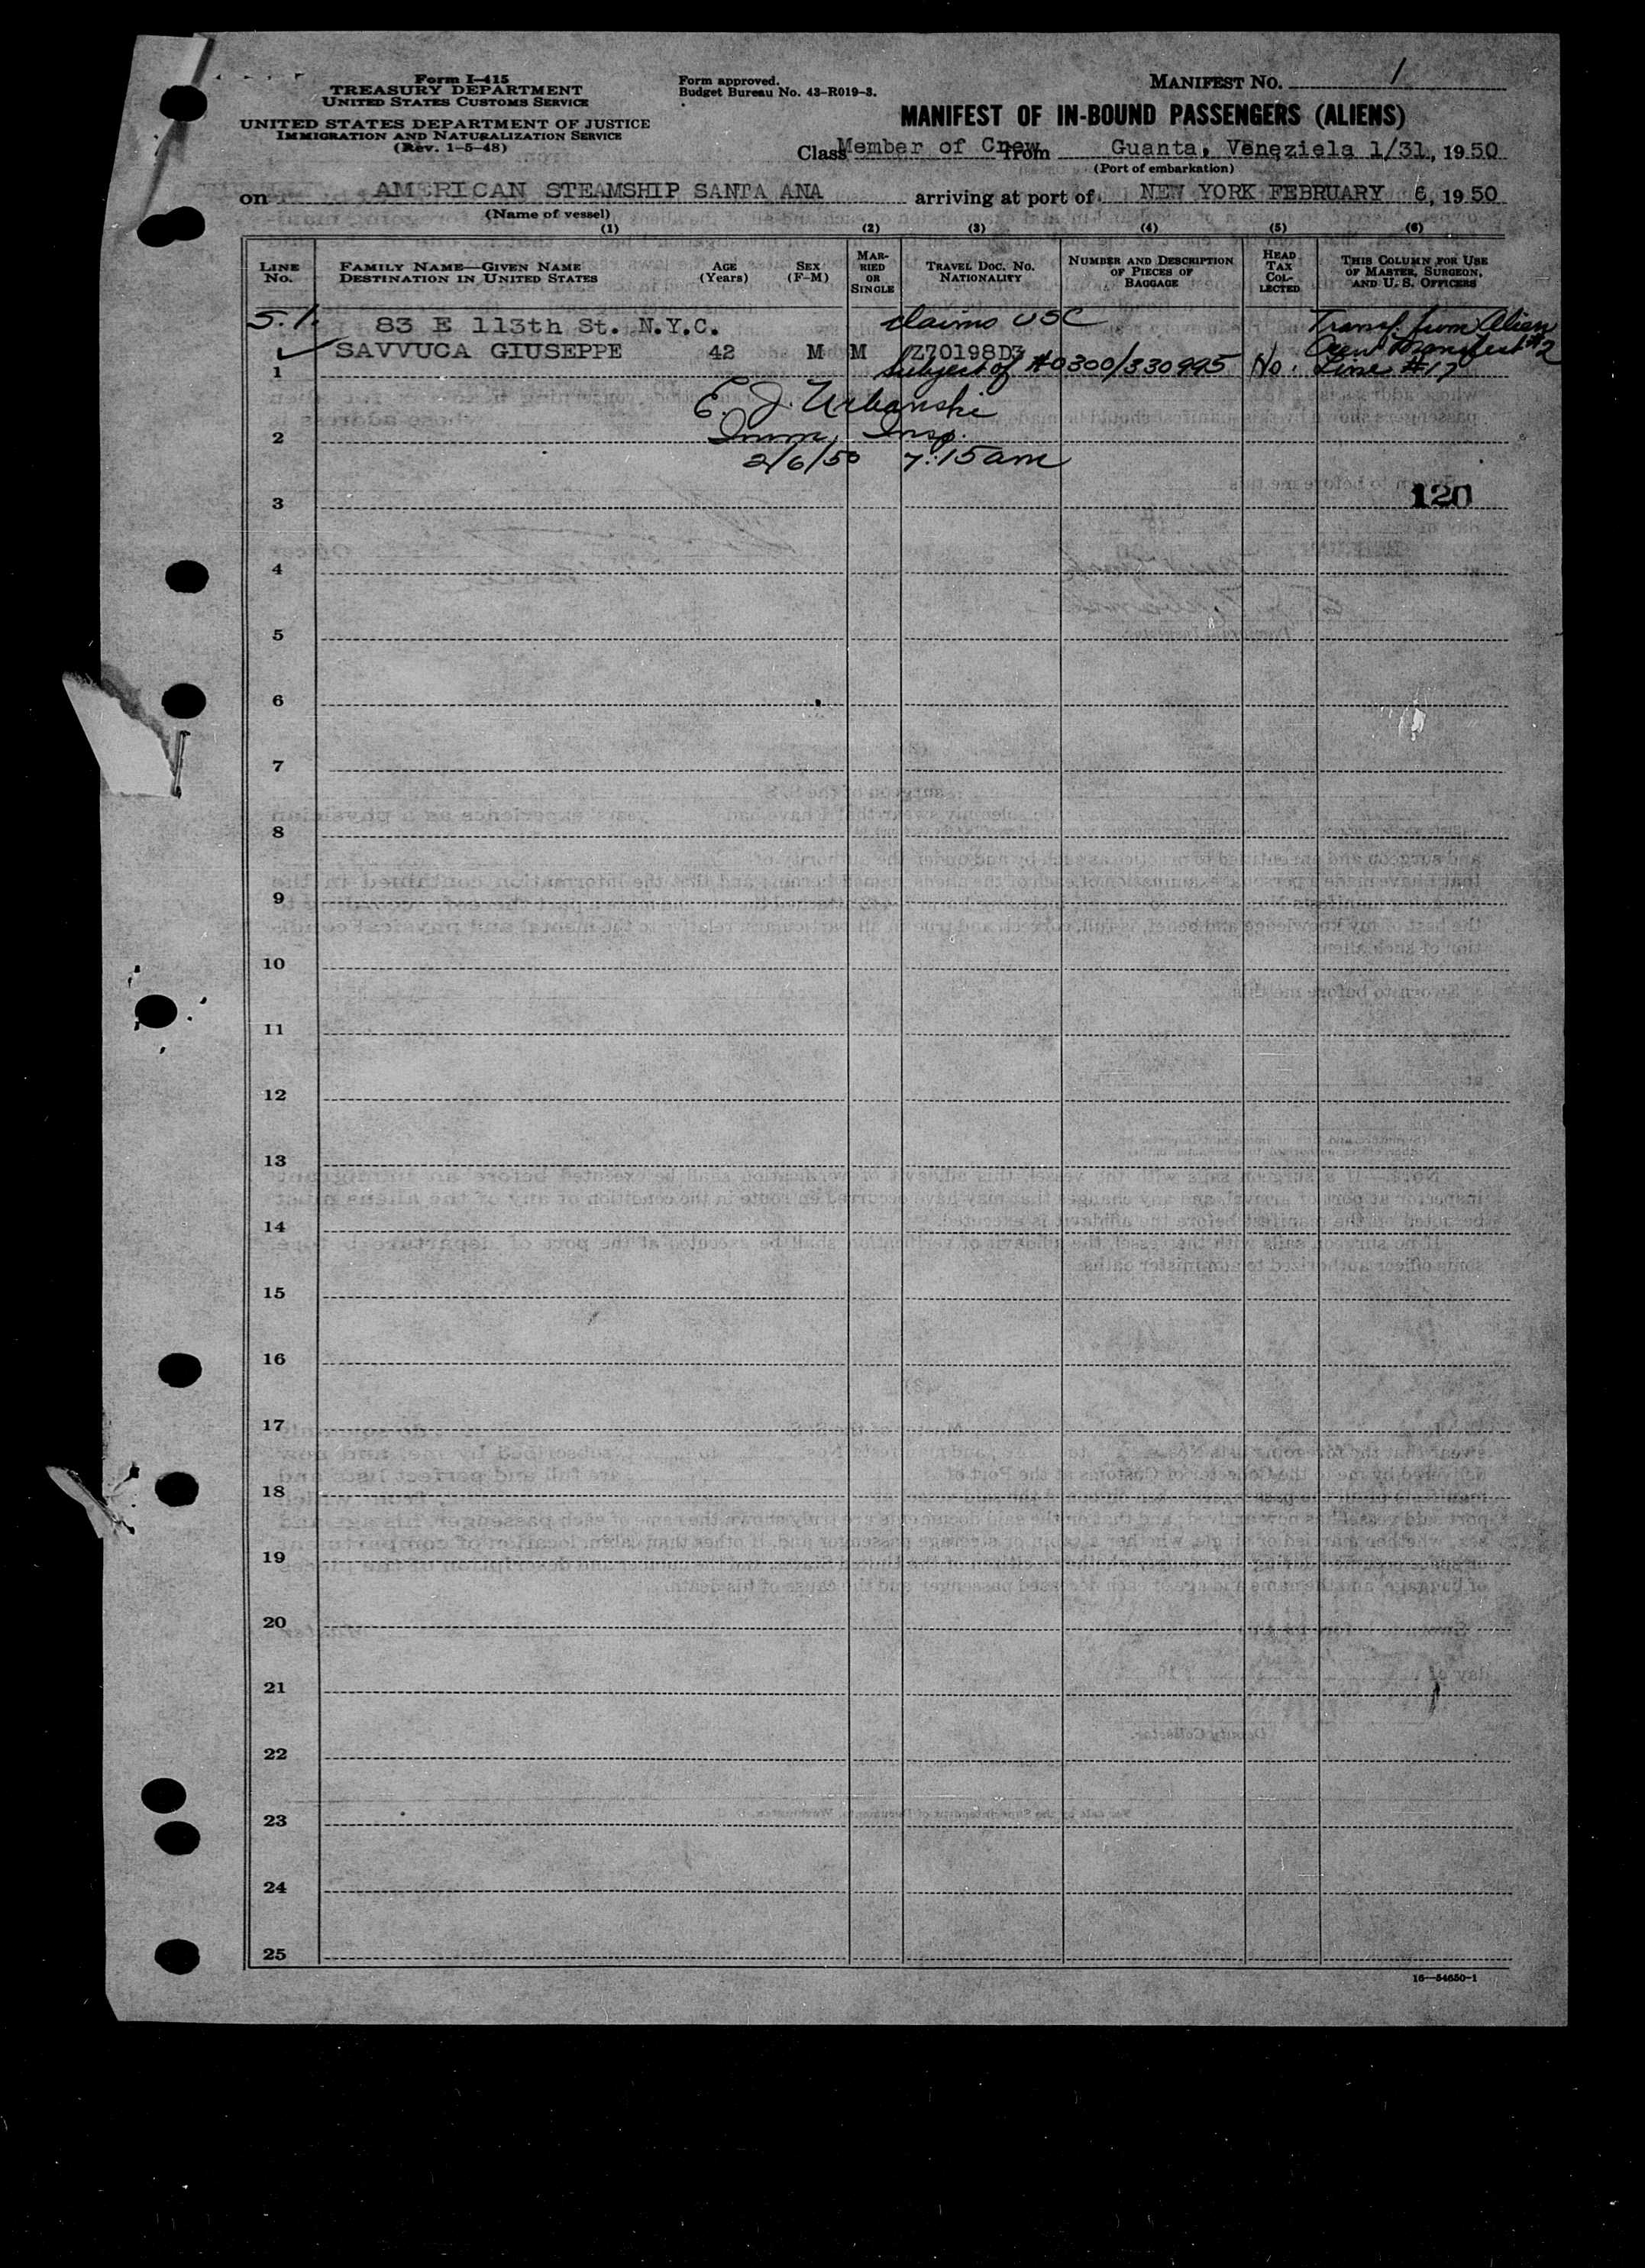 Form I-415
TREASURY DEPARTMENT
UNITED STATES CUSTOMS SERVICE
UNITED STATES DEPARTMENT OF JUSTICE
IMMIGRATION AND NATURALIZATION SERVICE
(Rev. 1-5-48)
Form approved.
Budget Bureau No. 43-R019-3.
MANIFEST NO. 1
MANIFEST OF IN-BOUND PASSENGERS (ALIENS)
Class Member of Crew from Guanta, Veneziela 1/31, 1950
(Port of embarkation)
on AMERICAN STEAMSHIP SANTA ANA arriving at port of NEW YORK FEBRUARY 6, 1950
(Name of vessel)
(1) (2) (3) (4) (5) (6)
LINE NO.
FAMILY NAME—GIVEN NAME
DESTINATION IN UNITED STATES
AGE
(Years)
SEX
(F-M)
MAR-
RIED
OR
SINGLE
TRAVEL DOC. NO.
NATIONALITY
NUMBER AND DESCRIPTION
OF PIECES OF
BAGGAGE
HEAD
TAX
COL-
LECTED
THIS COLUMN FOR USE
OF MASTER, SURGEON,
AND U. S. OFFICERS
S.I. 83 E 113th St. N.Y.C. claims USC Transf. from Alien
SAVVUCA GIUSEPPE 42 M M Z70198D3 Crew Manifest #2
1 Subject of #0300/330995 No. Line #17
E. J. Urbanski
2 Imm. Insp.
2/6/50 7:15am
120
3
4
5
6
7
8
9
10
11
12
13
14
15
16
17
18
19
20
21
22
23
24
25
16—54650-1